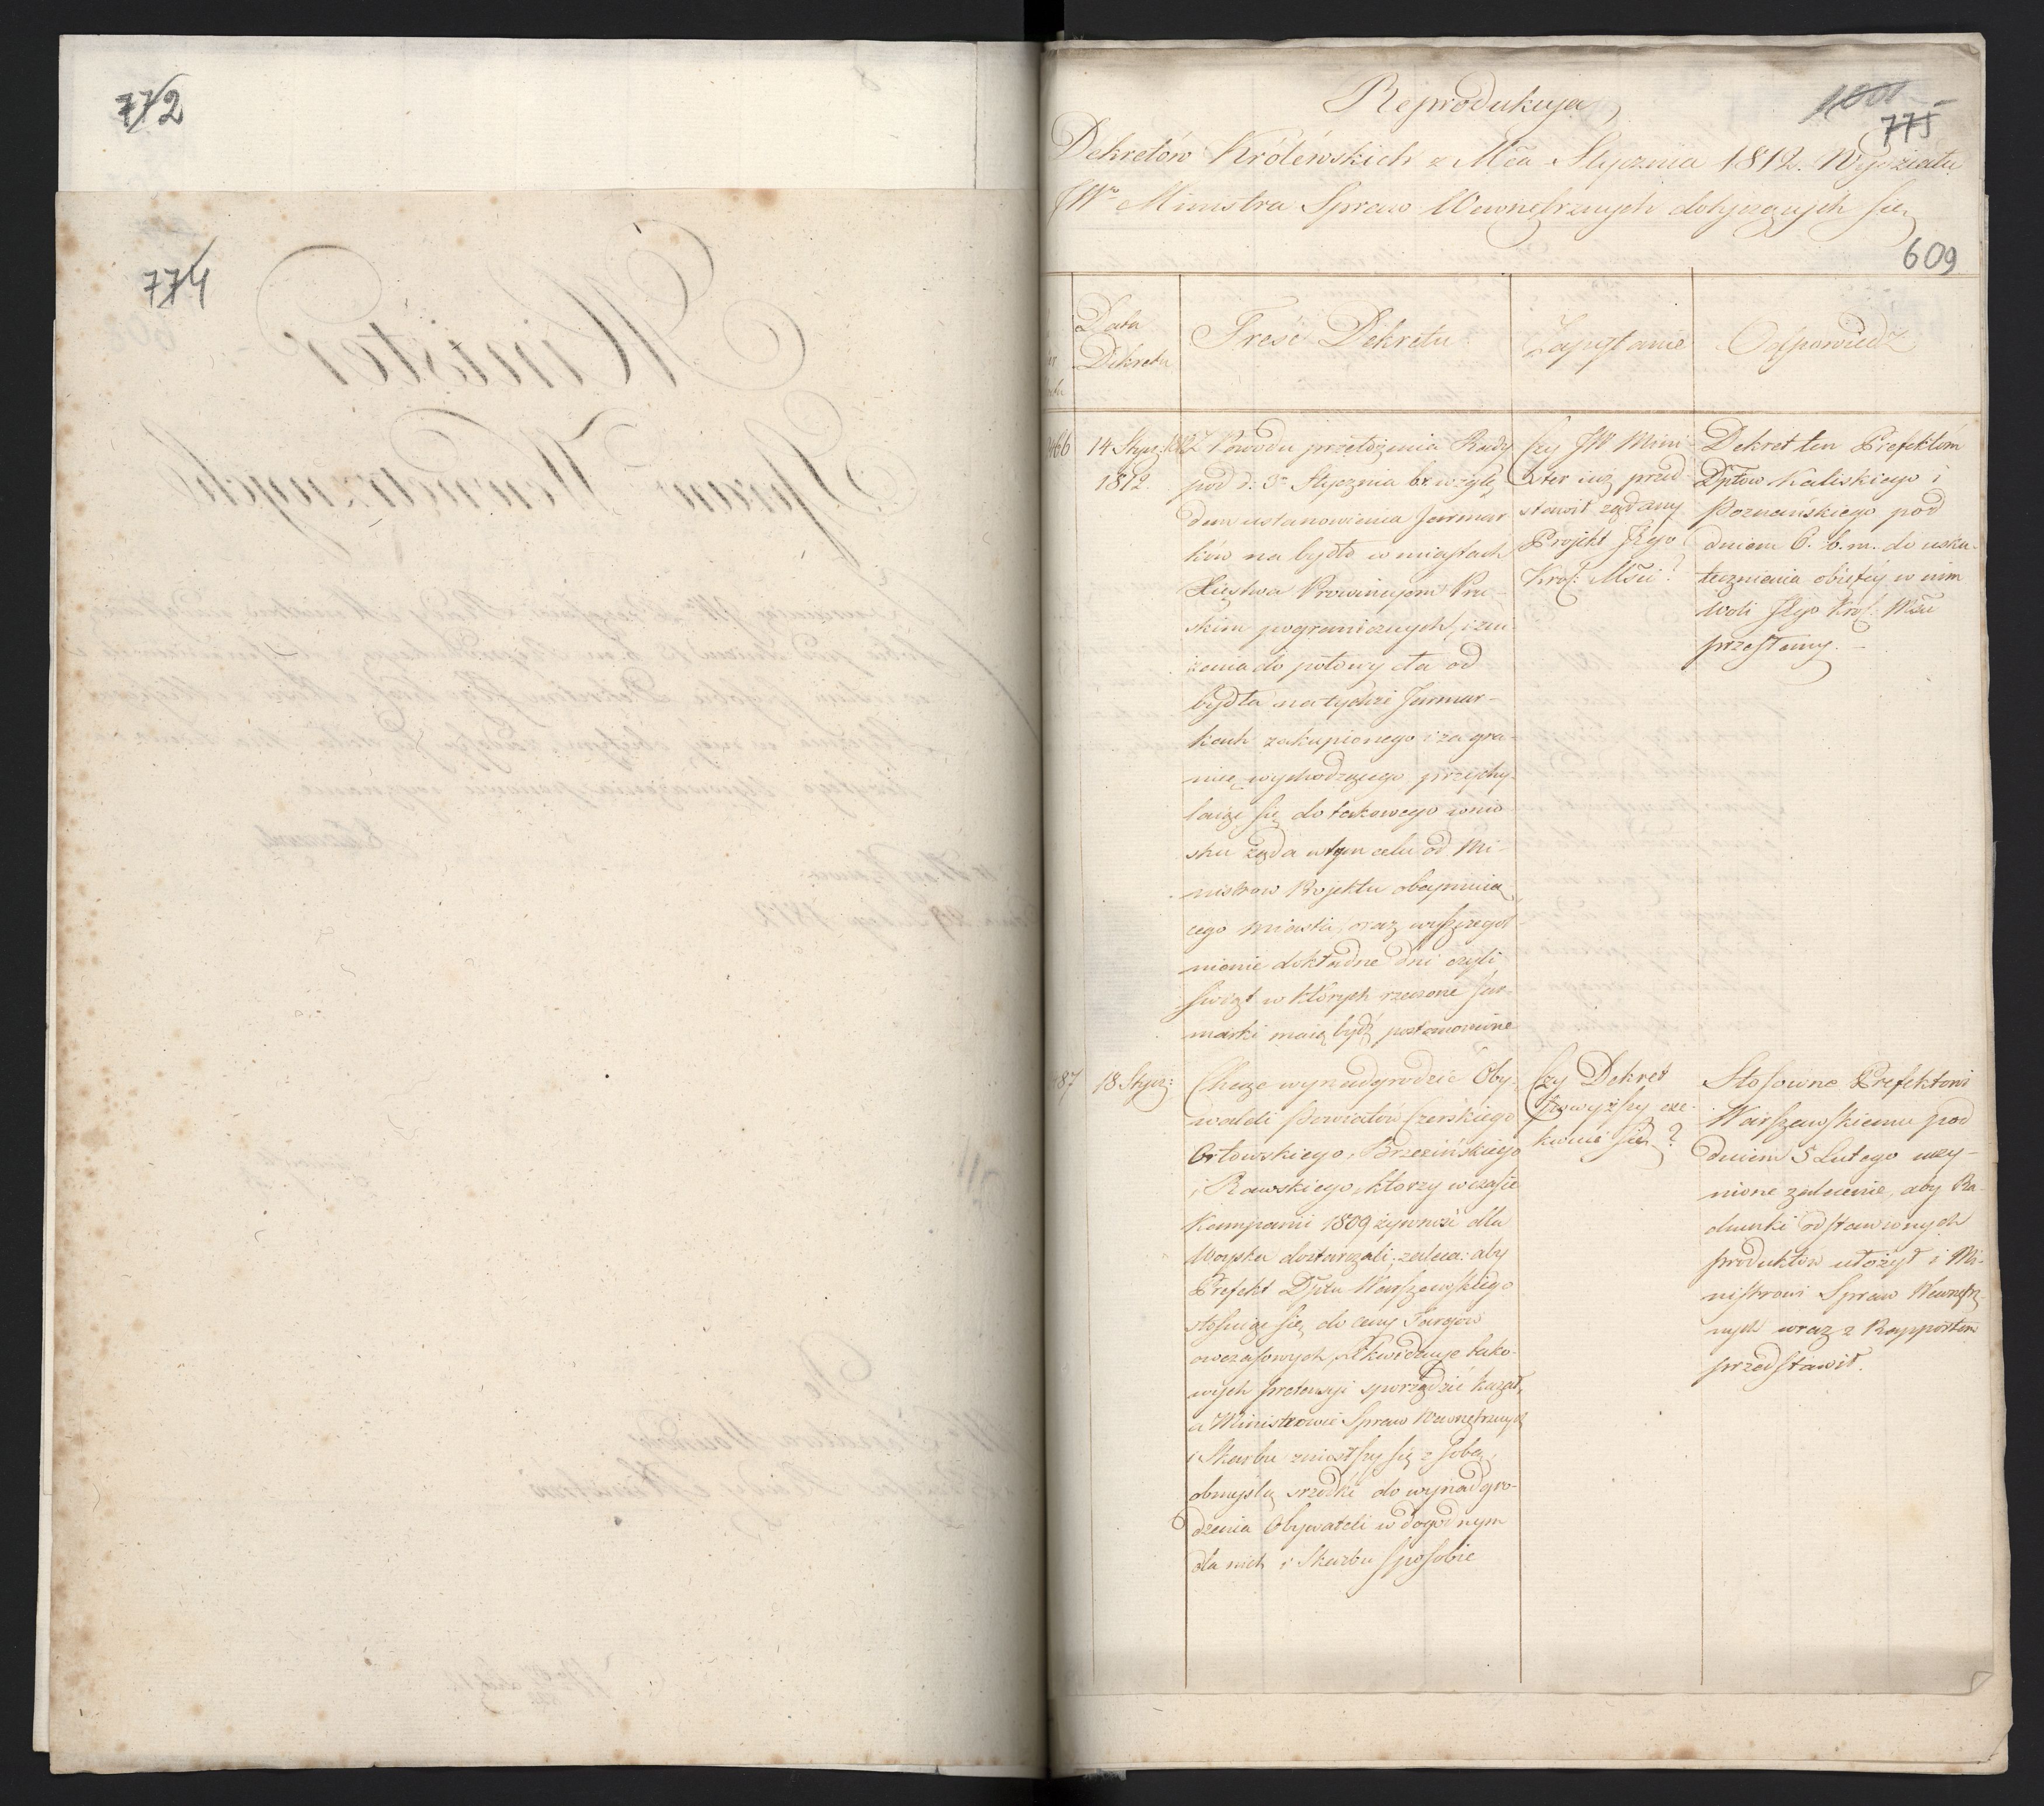 772
774
Reprodukuja
775
Dekretów Królewskich z Mca Stycznia 1812. Wydziału
JWo Ministra Spraw Wewnętrznych dotyczących się
609
Data
Dekretu
Treść Dekretu
Zapytanie
Odpowiedź
466
14 Stycz:
1812.
Z Powodu przełożenia Rady
pod d: 3o Stycznia br. wzglę
dem ustanowienia Jarmar
ków na bydło w miastach
Xięstwa Prowincyom Pru-
skim pogranicznych, i zni-
żenia do połowy cła od
bydła na tychże Jarmar-
kach zakupionego i za gra-
nicę wychodzącego, przychy-
laiąc się do takowego wnio
sku żąda w tym celu od Mi-
nistrow Projektu obeymuią
cego miasta, oraz wyszczegól
nienie dokładne dni czyli
świąt w których rzeczone Jar-
marki maią bydź postanowione
Czy JW Mini-
ster iuż przed
stawił żądany
Projekt JKgo
Król: Mści?
Dekret ten Prefektóm
Dptów Kaliskiego i
Poznańskiego pod
dniem 6. b.m. do usku-
tecznienia obiętéy w nim
Woli JKgo Król: Mści
przesłany. -
487
18 Stycz:
Chcąc wynadgrodzić Oby-
wateli Powiatów Czerskiego
Orłowskiego, Brzezińskiego
i Rawskiego, ktorzy w czasie
Kampanii 1809 żywność dla
Woyska dostarczali; zaleca: aby
Prefekt Dptu Warszawskiego
stosuiąc się do ceny Targów
owczasowych, Likwidacye tako-
wych pretensyi sporządzić kazał,
a Ministrowie Spraw Wewnętrznych
i Skarbu zniosłszy się z sobą,
obmyślą srzodki do wynadgro-
dzenia Obywateli w dogodnym
dla nich i Skarbu sposobie
Czy Dekret
powyższy exe-
kwuie się?
Stosowne Prefektowi
Warszawskiemu pod
dniem 5 Lutego uczy-
nione zalecenie, aby Ra-
chunki odstawionych
produktów ułożył i Mi-
nistrowi Spraw Wewnętrz-
nych wraz z Rapportem
przedstawił.